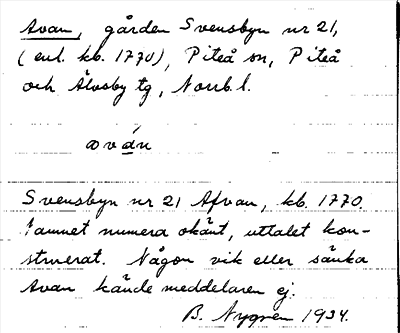 Avan, gården Svensbyn nr 21,
(enl. kb. 1770), Piteå sn, Piteå
och Älvsby tg, Norrb. l.
avá̱n
Svensbyn nr 21 Afvan, kb. 1770.
Namnet numera okänt, uttalet kon-
struerat. Någon vik eller sänka
Avan kände meddelaren ej.
B. Nygren 1934.